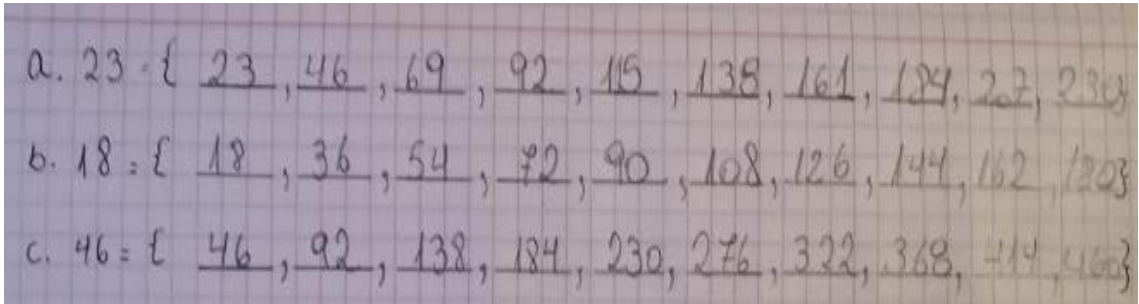 a. 23 = { 23, 46, 69, 92, 115, 138, 161, 184, 207, 230}
b. 18 = { 18, 36, 54, 72, 90, 108, 126, 144, 162, 180}
c. 46 = { 46, 92, 138, 184, 230, 276, 322, 368, 414, 460}